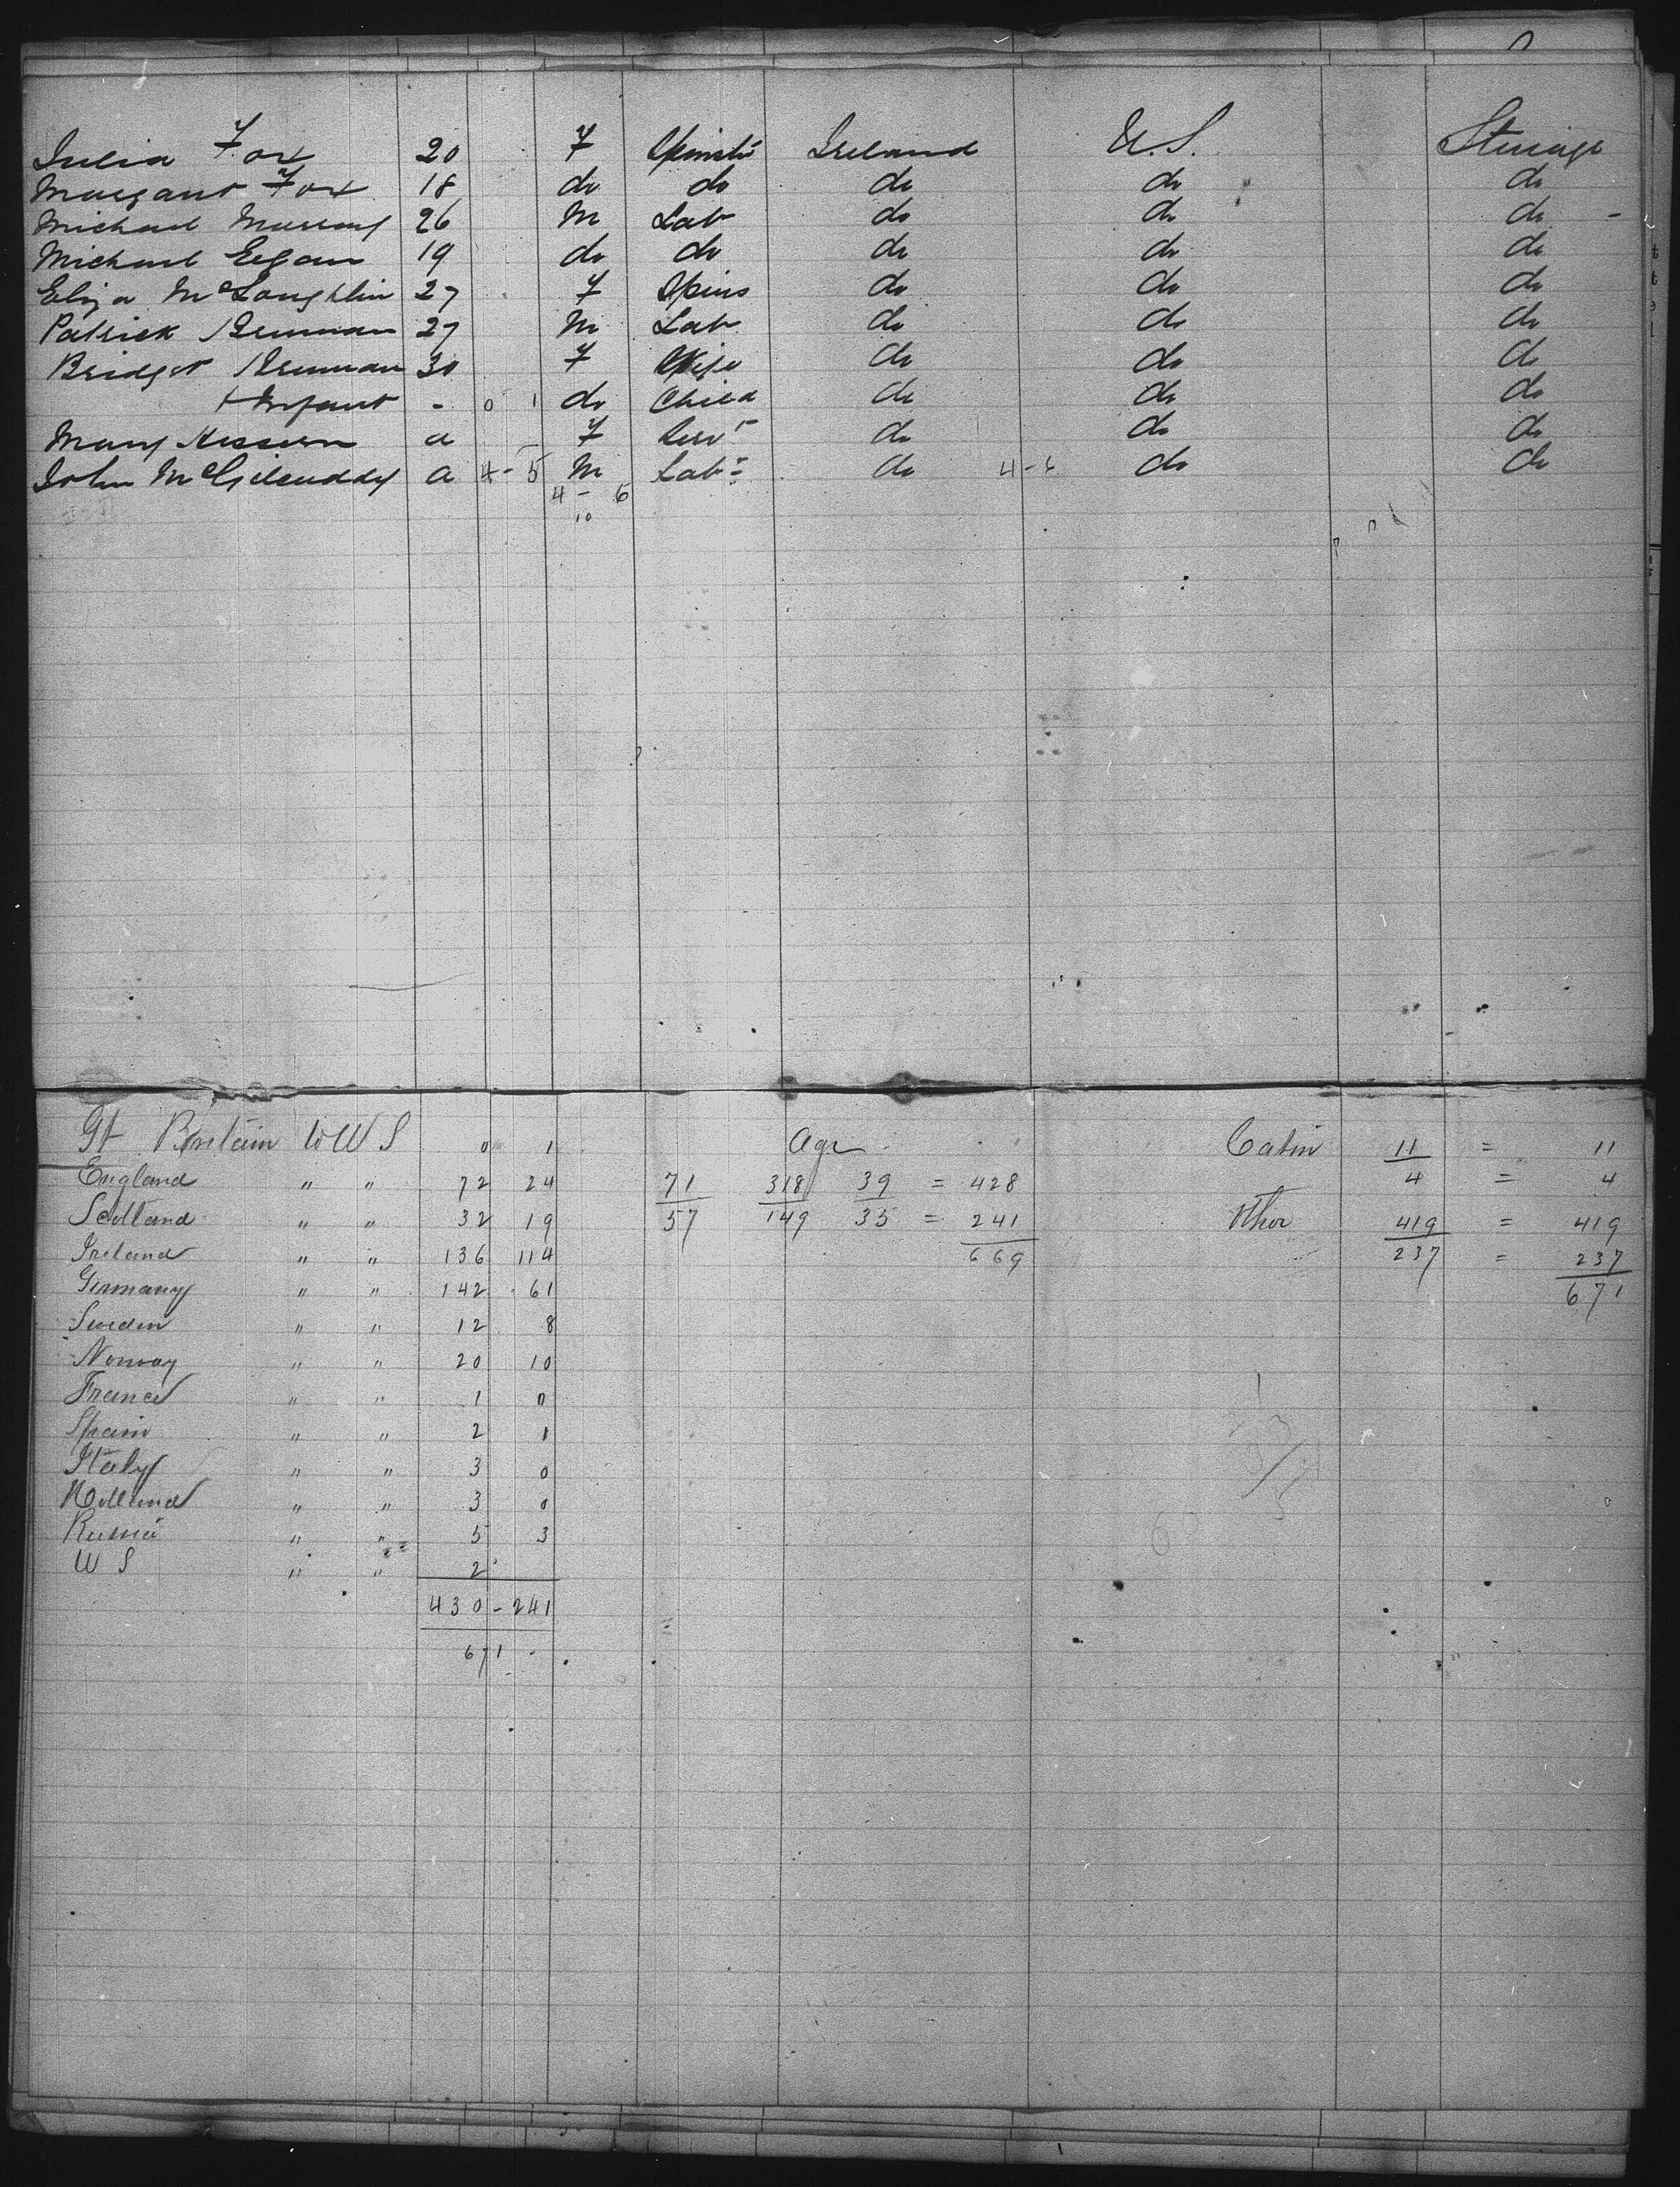 Julia Fox 20 F Spinstr Ireland U.S. Steerage
Margaret Fox 18 do do do do do
Michael Murray 26 M Lab do do do -
Michael Egan 19 do do do do do
Eliza McLoughlin 27 F Spins do do do
Patrick Brennan 27 M Lab do do do
Bridget Brennan 30 F Wife do do do
+ Infant - 0 1 do Child do do do
Mary a F Servt do do do
John McGilcuddy a 4-5 M Labr do 4-6 do do
4 - 6
10
Gt Britain to U S 0 1 Age Cabin 11 = 11
England " " 72 24 71 318 39 = 428 4 = 4
Scotland " " 32 19 57 149 35 = 241 Other 419 = 419
Ireland " " 136 114 669 237 = 237
Germany " " 142 61 671
Sweden " " 12 8
Norway " " 20 10
France " " 1 0
Spain " " 2 1
Italy " " 3 0
Holland " " 3 0
Russia " " 5 3
U S " " 2
430 - 241
671